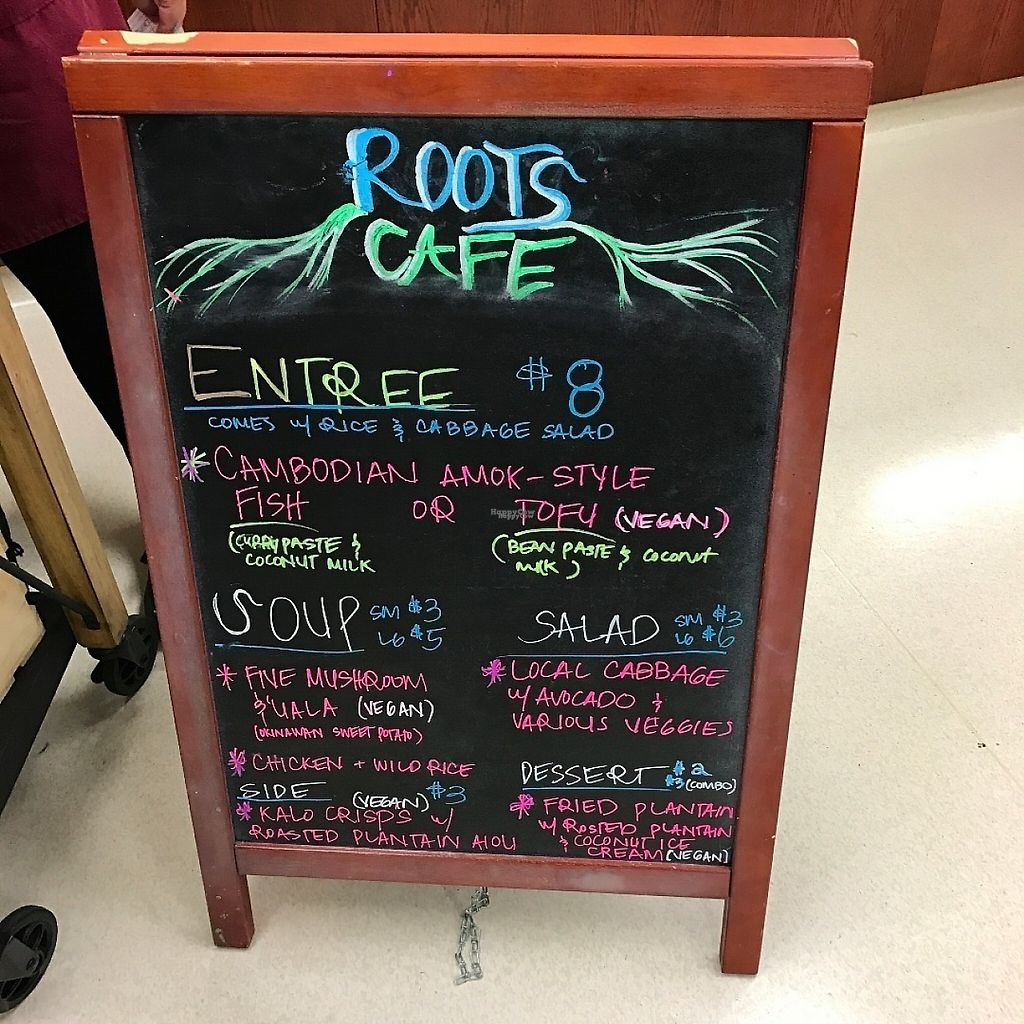 ROOTS
CAFE
ENTREE $8
COMES W/ RICE & CABBAGE SALAD
* CAMBODIAN AMOK-STYLE
FISH OR TOFU (VEGAN)
(CURRY PASTE & COCONUT MILK
(BEAN PASTE & COCONUT MILK)
SOUP SM $3
LG $5
* FIVE MUSHROOM
& 'UALA (VEGAN)
(OKINAWAN SWEET POTATO)
* CHICKEN + WILD RICE
SIDE (VEGAN) $3
* KALO CRISPS W/
ROASTED PLANTAIN AIOLI
SALAD SM $3
LG $6
* LOCAL CABBAGE
W/ AVOCADO &
VARIOUS VEGGIES
DESSERT $2
$3 (COMBO)
* FRIED PLANTAIN
W/ ROSTED PLANTAIN
& COCONUT ICE
CREAM (VEGAN)
HappyCow
HappyCow